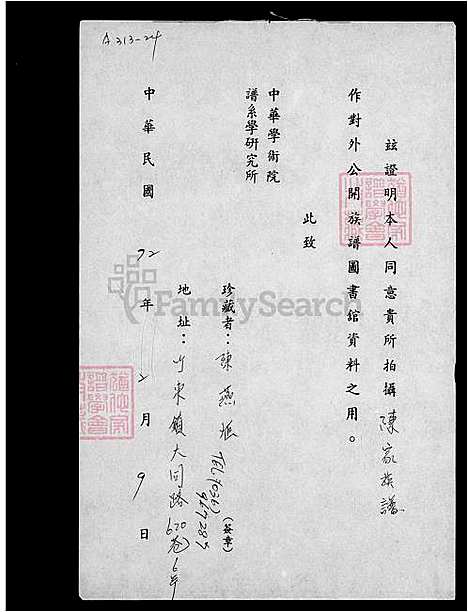 A313-24
茲證明本人同意貴所拍攝陳家族譜
作對外公開族譜圖書館資料之用。
此致
中華學術院
譜系學研究所
珍藏者：陳燕
TEL(036)
(簽章)
地址：竹東鎮大同路670巷6弄
中華民國72年2月9日
FamilySearch